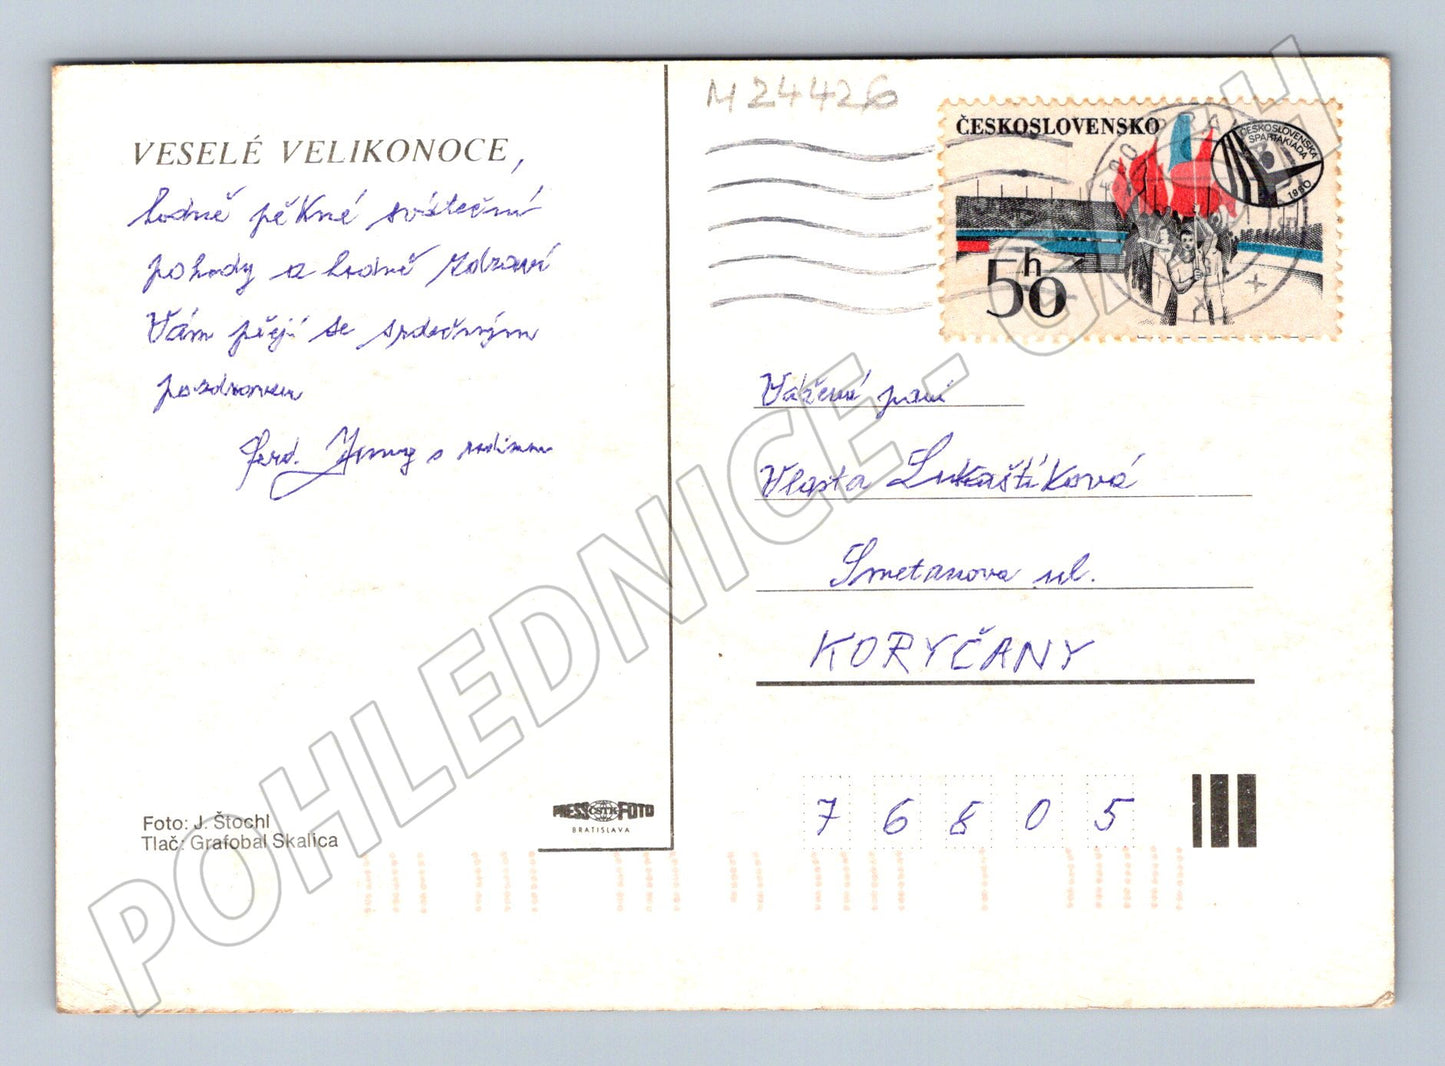 VESELÉ VELIKONOCE,
hodně pěkné sváteční
pohody a hodně zdraví
Vám přeji se srdečným
pozdravem
Ferd. s rodinou
Foto: J. Štochl
Tlač: Grafobal Skalica
PRESS ČSTK FOTO
BRATISLAVA
M24426
ČESKOSLOVENSKO
ČESKOSLOVENSKÁ
SPARTAKIÁDA
1980
50h
Vážená paní
Vlasta Lukaštíková
Smetanova ul.
KORYČANY
76805
POHLEDNICE -